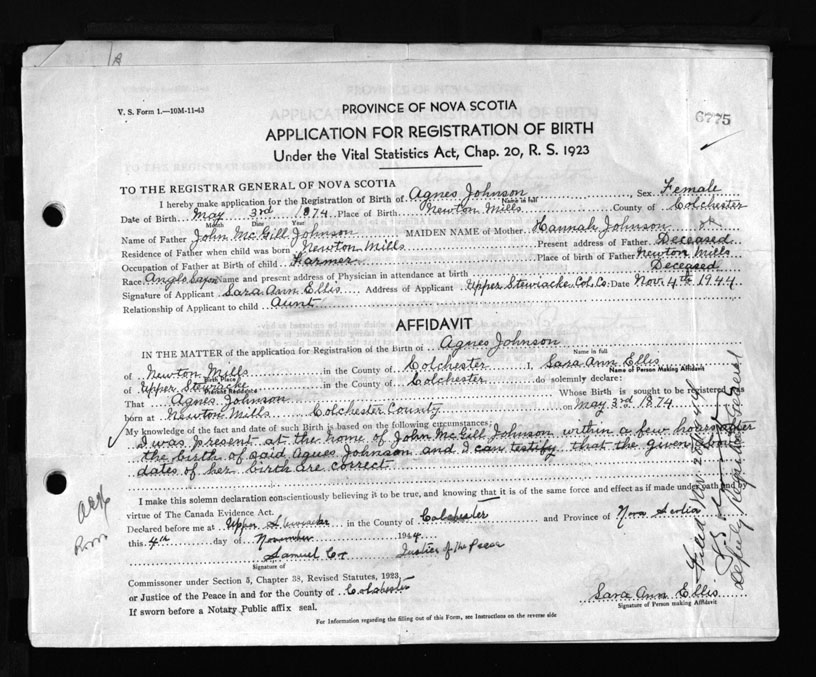 V. S. Form 1.—10M-11-43
PROVINCE OF NOVA SCOTIA
6775
APPLICATION FOR REGISTRATION OF BIRTH
Under the Vital Statistics Act, Chap. 20, R. S. 1923
TO THE REGISTRAR GENERAL OF NOVA SCOTIA
I hereby make application for the Registration of Birth of Agnes Johnson, Sex Female
Name in full
Date of Birth May 3rd 1874 Place of Birth Newton Mills County of Colchester
Month Date Year
Name of Father John McGill Johnson MAIDEN NAME of Mother Hannah Johnson
Residence of Father when child was born Newton Mills Present address of Father Deceased
Occupation of Father at Birth of child Farmer Place of birth of Father Newton Mills
Race Anglo Saxon Name and present address of Physician in attendance at birth Deceased
Signature of Applicant Sara Ann Ellis Address of Applicant Upper Stewiacke Col. Co. Date Nov. 4th 1944
Relationship of Applicant to child Aunt
AFFIDAVIT
IN THE MATTER of the application for Registration of the Birth of Agnes Johnson
Name in full
of Newton Mills in the County of Colchester I, Sara Ann Ellis
Birth Place Name of Person Making Affidavit
of Upper Stewiacke in the County of Colchester do solemnly declare:
Present Residence
That Agnes Johnson Whose Birth is sought to be registered was
born at Newton Mills Colchester County on May 3rd 1874
My knowledge of the fact and date of such Birth is based on the following circumstances:
I was present at the home of John McGill Johnson within a few hours after
the birth of said Agnes Johnson and I can testify that the given
dates of her birth are correct
I make this solemn declaration conscientiously believing it to be true, and knowing that it is of the same force and effect as if made under oath and by
virtue of The Canada Evidence Act.
Declared before me at Upper Stewiacke in the County of Colchester and Province of Nova Scotia
this 4th day of November 1944
Samuel Cox Justice of the Peace
Signature of
Commissioner under Section 5, Chapter 38, Revised Statutes, 1923,
or Justice of the Peace in and for the County of Colchester
If sworn before a Notary Public affix seal.
Sara Ann Ellis
Signature of Person making Affidavit
For Information regarding the filling out of this Form, see Instructions on the reverse side
Deputy Registrar General